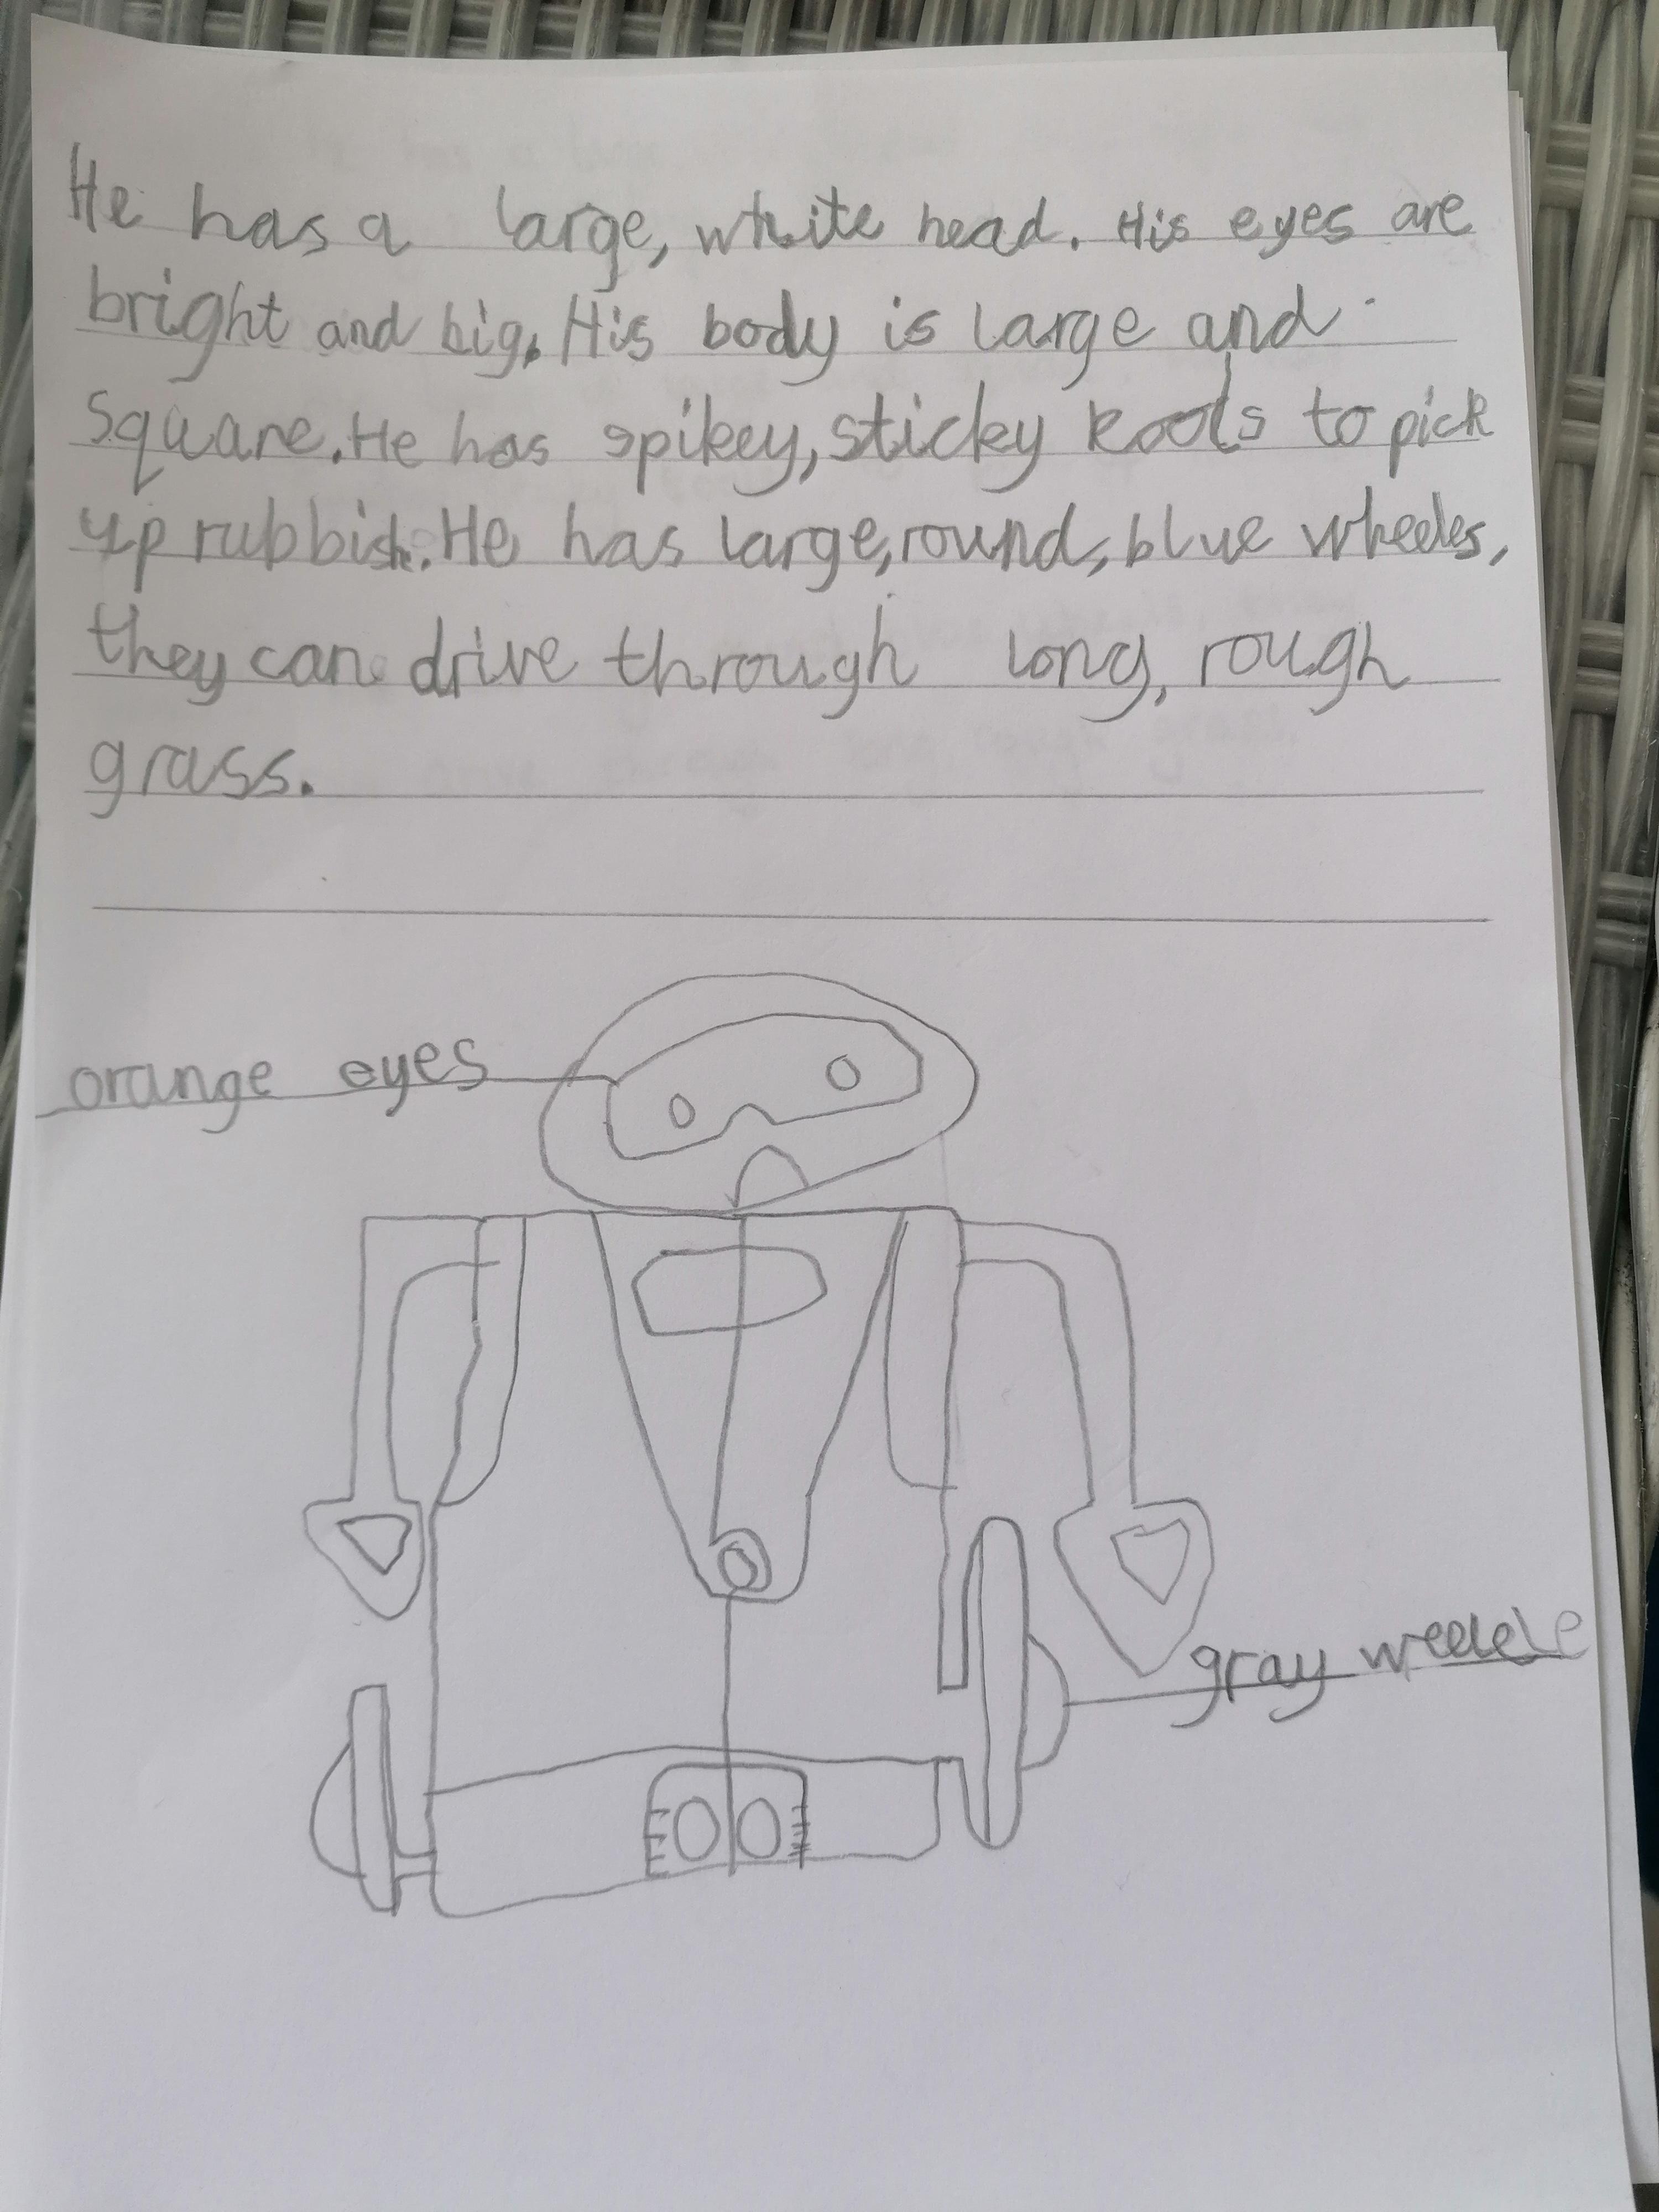 He has a large, white head. His eyes are
bright and big. His body is large and
square. He has spikey, sticky to pick
up rubbish. He has large, round, blue wheeles,
they can drive through long, rough
grass.
orange eyes
gray